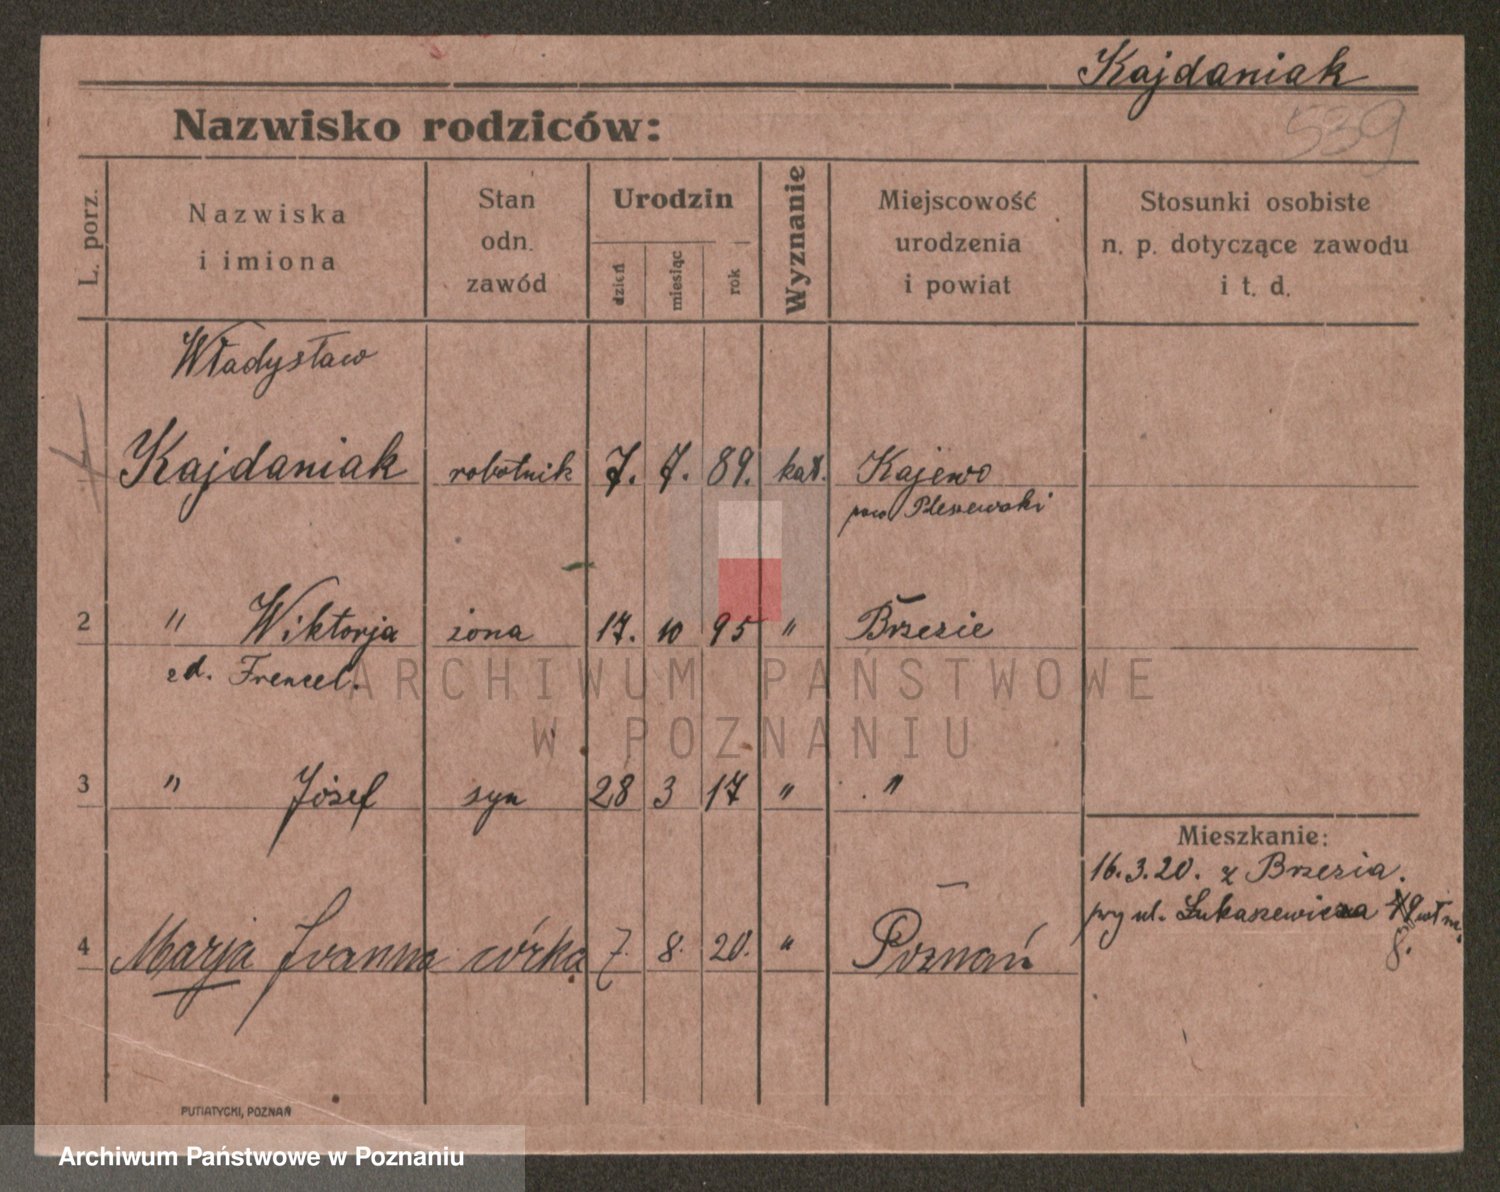 Kajdaniak
539
Nazwisko rodziców:
L. porz.
Nazwiska
i imiona
Stan
odn.
zawód
Urodzin
dzień
miesiąc
rok
Wyznanie
Miejscowość
urodzenia
i powiat
Stosunki osobiste
n. p. dotyczące zawodu
i t. d.
Władysław
Kajdaniak robotnik 7. 7. 89. kat. Kajewo
pow Pleszewski
2 " Wiktorja żona 17. 10 95 " Brzezie
zd. Frencel.
ARCHIWUM PAŃSTWOWE
W POZNANIU
3 " Józef syn 28 3 17 " "
Mieszkanie:
16.3.20. z Brzezia.
przy ul. Łukaszewicza
8.
4 Marja Joanna córka 7. 8. 20. " Poznań
PUTIATYCKI, POZNAŃ
Archiwum Państwowe w Poznaniu